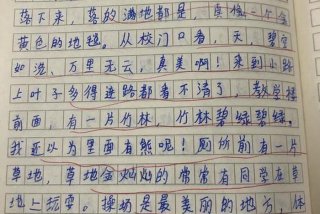 落下来，落的满地都是，真像一个金
黄色的地毯。从校门口看，天，碧空
如洗、万里无云，真美啊！来到小路
上叶子多得连路都看不清了，教学楼
前面，有一片竹林，竹林碧绿碧绿，
我还以为里面有熊呢！厕所前有一片
草地，草地金灿灿的常常有同学在草
地上玩耍。操场是最美丽的地方，体